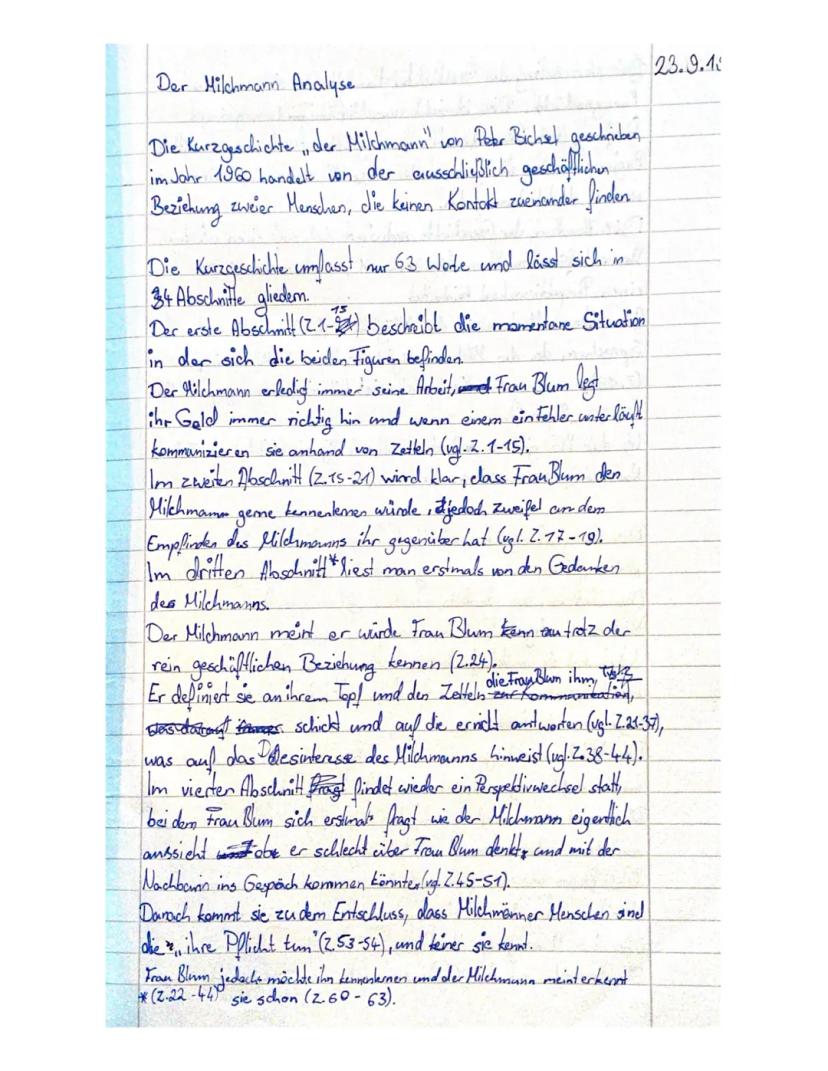 23.9.1
Der Milchmann Analyse
Die Kurzgeschichte „der Milchmann" von Peter Bichsel geschrieben
im Jahr 1960 handelt von der ausschließlich geschäftlichen
Beziehung zweier Menschen, die keinen Kontakt zueinander finden.
Die Kurzgeschichte umfasst nur 63 Worte und lässt sich in
4 Abschnitte gliedern.
Der erste Abschnitt (Z.1-15) beschreibt die momentane Situation
in der sich die beiden Figuren befinden.
Der Milchmann erledigt immer seine Arbeit, Frau Blum legt
ihr Geld immer richtig hin und wenn einem ein Fehler unterläuft
kommunizieren sie anhand von Zetteln (vgl. Z.1-15).
Im zweiten Abschnitt (Z.15-21) wird klar, dass Frau Blum den
Milchmann gerne kennenlernen würde, jedoch zweifel an dem
Empfinden des Milchmanns ihr gegenüber hat (vgl. Z.17-19).
Im dritten Abschnitt* liest man erstmals von den Gedanken
des Milchmanns.
Der Milchmann meint er würde Frau Blum trotz der
rein geschäftlichen Beziehung kennen (Z.24).
Er definiert sie an ihrem Topf und den Zetteln die Frau Blum ihm,
schickt und auf die er nicht antwortet (vgl. Z.21-37),
was auf das Desinteresse des Milchmanns hinweist (vgl. Z.38-44).
Im vierten Abschnitt findet wieder ein Perspektivwechsel statt,
bei dem Frau Blum sich erstmals fragt wie der Milchmann eigentlich
aussieht ob er schlecht über Frau Blum denkt, und mit der
Nachbarin ins Gespäch kommen könnte (vgl. Z.45-51).
Danach kommt sie zu dem Entschluss, dass Milchmänner Menschen sind
die „ihre Pflicht tun" (Z.53-54), und keiner sie kennt.
Frau Blum jedoch möchte ihn kennenlernen und der Milchmann meint er kennt
*(Z.22-44) sie schon (Z.60-63).